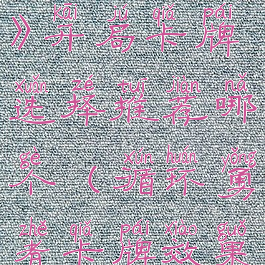 kāi jú qiǎ pái
》开局卡牌
xuǎn zé tuī jiàn nǎ
选择推荐哪
gè xún huán yǒng
个(循环勇
zhě qiǎ pái xiào guǒ
者卡牌效果